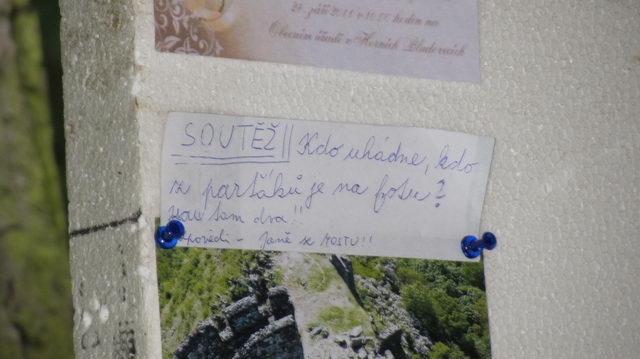 27. září 2011 v 10.00 hodin na
Obecním úřadě v Horních Bludovicích
SOUTĚŽ || Kdo uhádne, kdo
z parťáků je na fotu?
Jsou tam dva!!
odpovědi - Janě z MOSTU!!